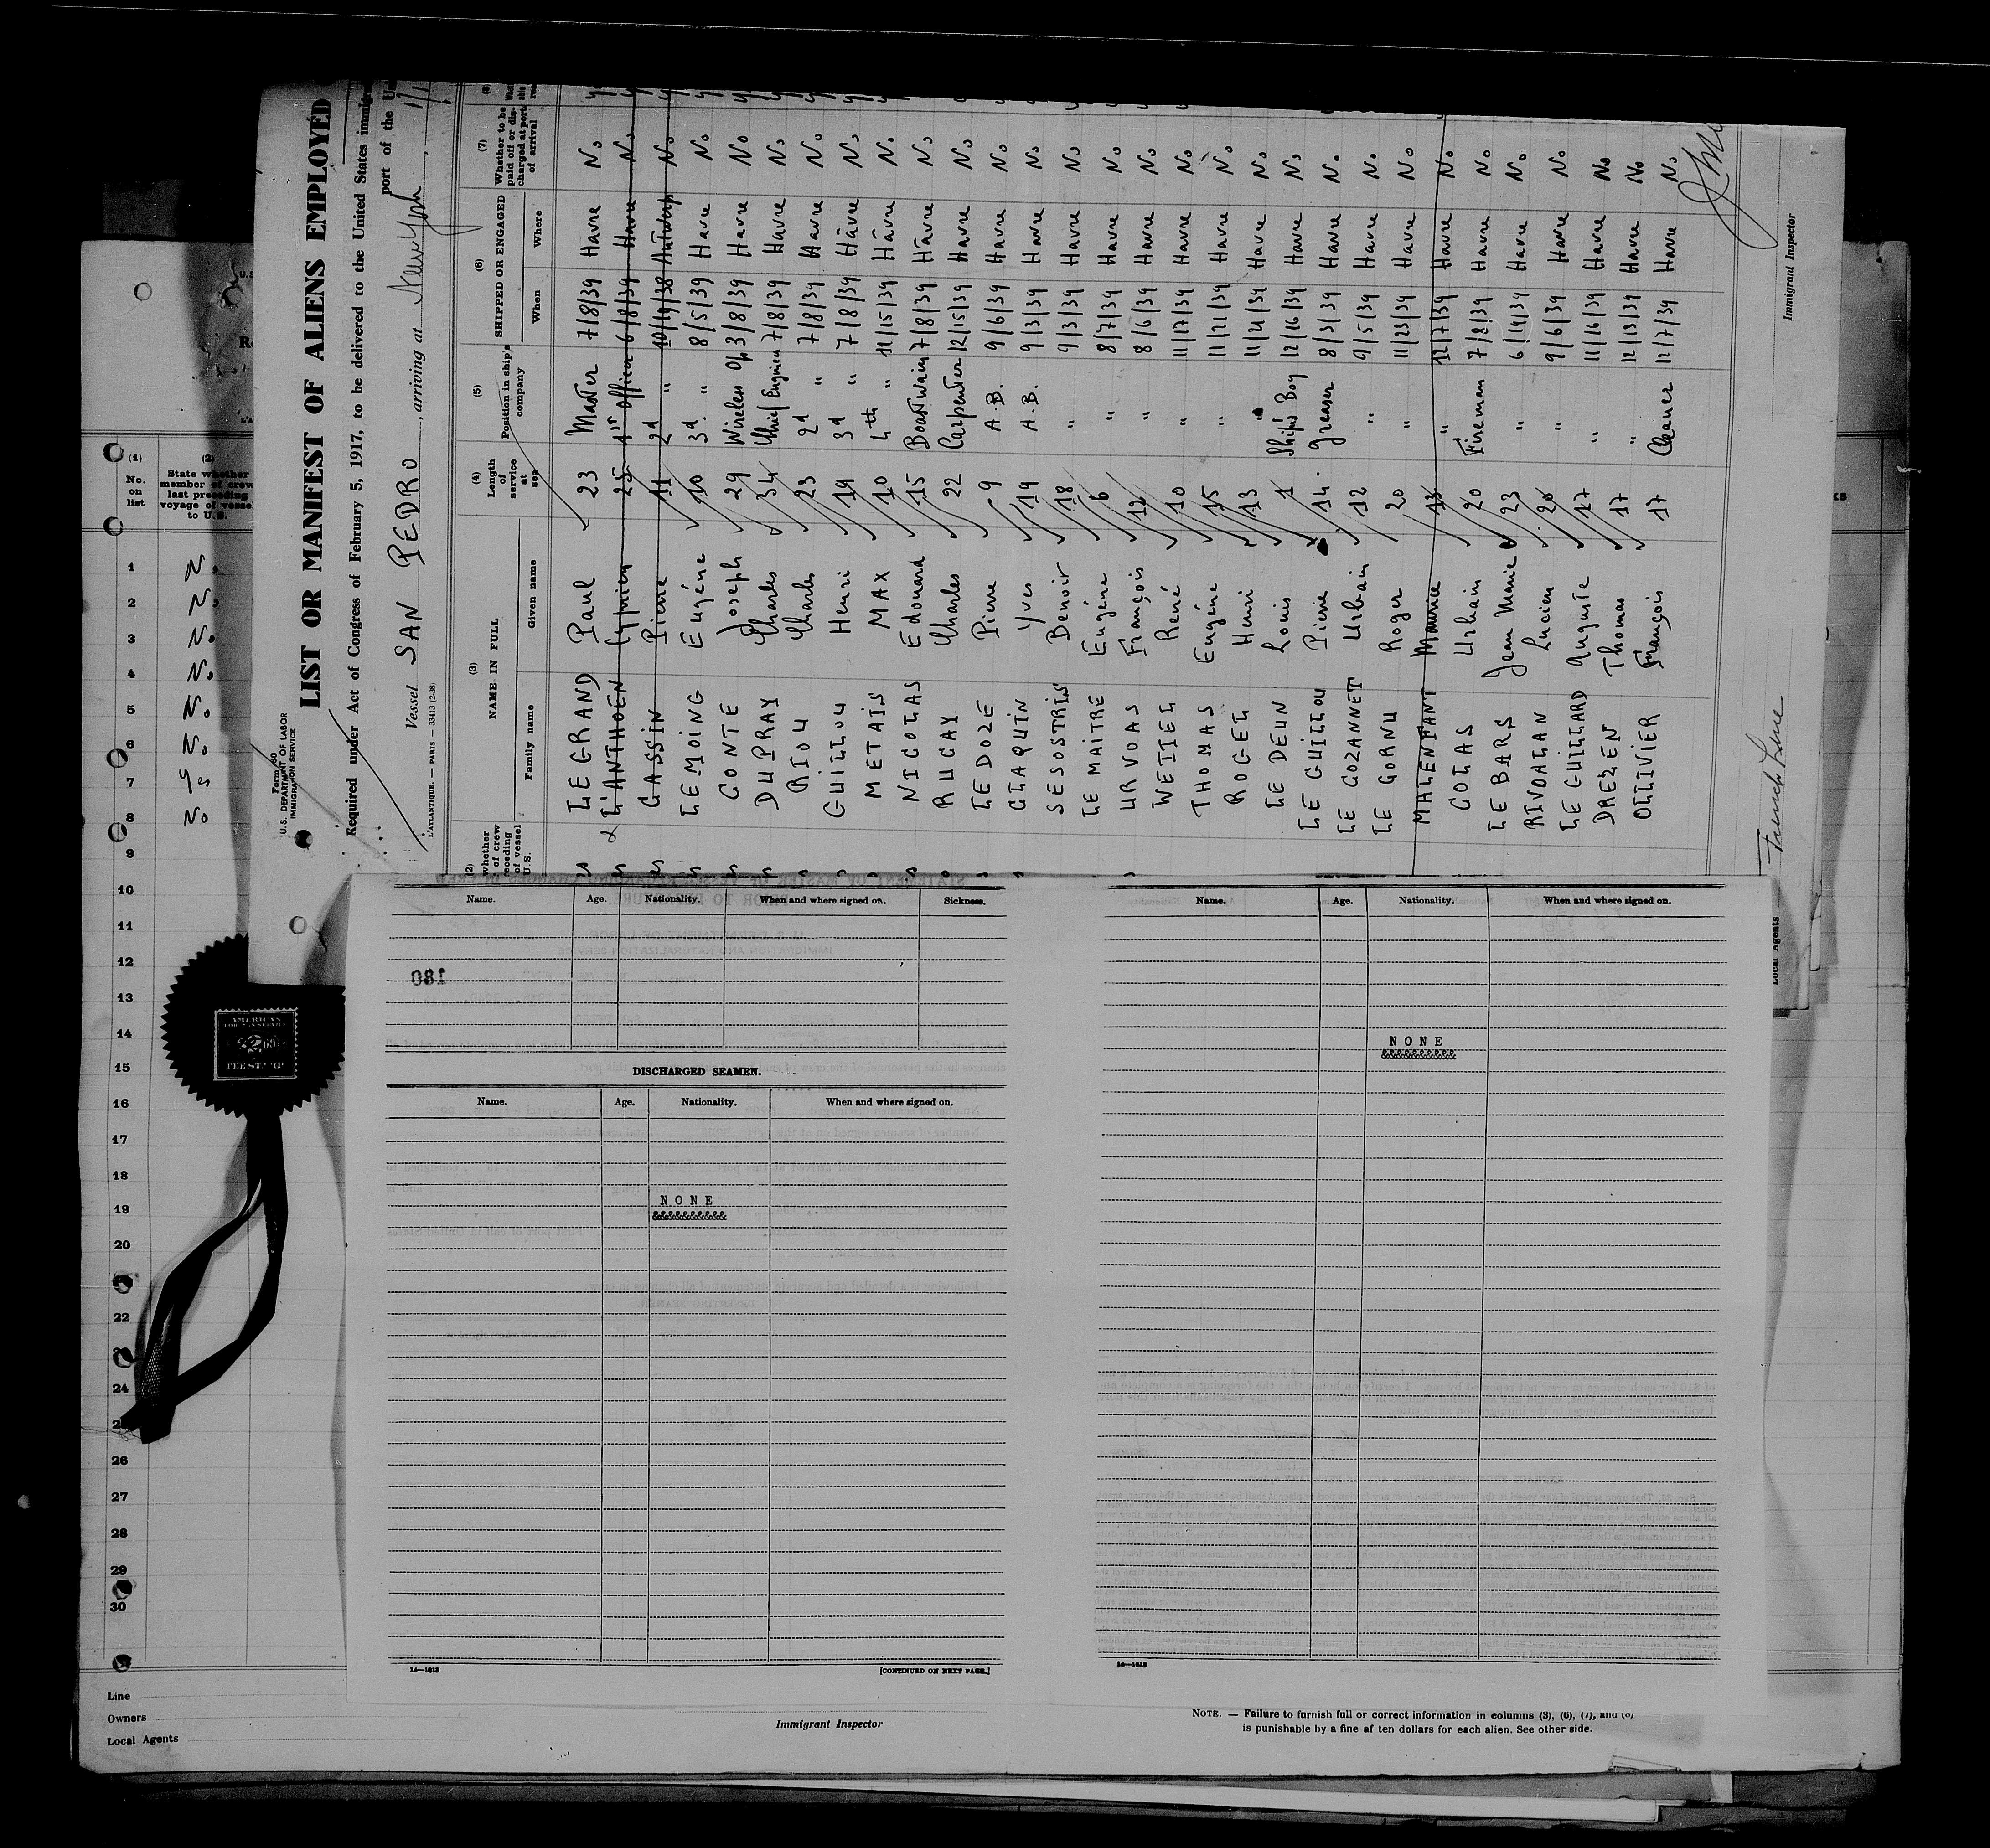 LIST OR MANIFEST OF ALIENS EMPLOYED
Required under Act of Congress of February 5, 1917, to be delivered to the United States
port of the
Form 680
U.S. DEPARTMENT OF LABOR
IMMIGRATION SERVICE
Vessel SAN PEDRO, arriving at New York,
L'ATLANTIQUE. — PARIS — 33413 (2-38)
(2) (3) (4) (5) (6) (7)
whether of crew receding of vessel U.S. NAME IN FULL Length of service at sea Position in ship's company SHIPPED OR ENGAGED Whether to be paid off or discharged at port of arrival
Family name Given name When Where
LEGRAND Paul 23 Master 7/8/39 Havre No
L'ANTHOEN Cyprien 25 1st Officer 6/8/39 Havre No
CASSIN Pierre 11 2d " 10/19/38 Antwerp No
LEMOING Eugéne 10 3d " 8/5/39 Havre No
CONTE Joseph 29 Wireless Op 3/8/39 Havre No
DUPRAY Charles 34 Chief Engineer 7/8/39 Havre No
RIOU Charles 23 2d " 7/8/39 Havre No
GUILLOU Henri 19 3d " 7/8/39 Hâvre No
METAIS MAX 10 4th " 11/15/39 Hâvre No
NICOLAS Edouard 15 Boastwain 7/8/39 Hâvre No
RUCAY Charles 22 Carpenter 12/15/39 Havre No
LEDOZE Pierre 9 A.B. 9/6/39 Havre No
CLAQUIN Yves 19 A.B. 9/3/39 Havre No
SESOSTRIS Benoit 18 " 9/3/39 Havre No
LE MAITRE Eugéne 6 " 8/7/39 Havre No
URVOAS François 12 " 8/6/39 Havre No
WETTEL René 10 " 11/17/39 Havre No
THOMAS Eugéne 15 " 11/21/39 Havre No
ROGEL Henri 13 " 11/21/39 Havre No
LE DEUN Louis 1 Ship's Boy 12/16/39 Havre No
LE GUILLOU Pierre 14 Greaser 8/3/39 Havre No
LE COZANNET Urbain 12 " 9/5/39 Havre No
LE CORNU Roger 20 " 11/23/39 Havre No
MALENFANT Maurice 13 " 12/7/39 Havre No
COLAS Urbain 20 Fireman 7/8/39 Havre No
LE BARS Jean Marie 23 " 6/14/39 Havre No
RIVOALAN Lucien 20 " 9/6/39 Havre No
LE GUILLARD Auguste 17 " 11/16/39 Havre No
DREZEN Thomas 17 " 12/13/39 Havre No
OLLIVIER François 17 Cleaner 12/7/39 Havre No
French Line
Local Agents
Immigrant Inspector
(1) (2)
No. on list State whether member of crew last preceding voyage of vessel to U.S.
1 No
2 No
3 No
4 No
5 No
6 No
7 Yes
8 No
9
10
11
12
13
14
15
16
17
18
19
20
22
24
26
27
28
29
30
AMERICAN
FEE STAMP
Name. Age. Nationality. When and where signed on. Sickness.
180
DISCHARGED SEAMEN.
Name. Age. Nationality. When and where signed on.
NONE
14—1613 [CONTINUED ON NEXT PAGE.]
Name. Age. Nationality. When and where signed on.
NONE
14—1613
Line
Owners
Local Agents
Immigrant Inspector
NOTE. — Failure to furnish full or correct information in columns (3), (6), (7), and (8)
is punishable by a fine af ten dollars for each alien. See other side.